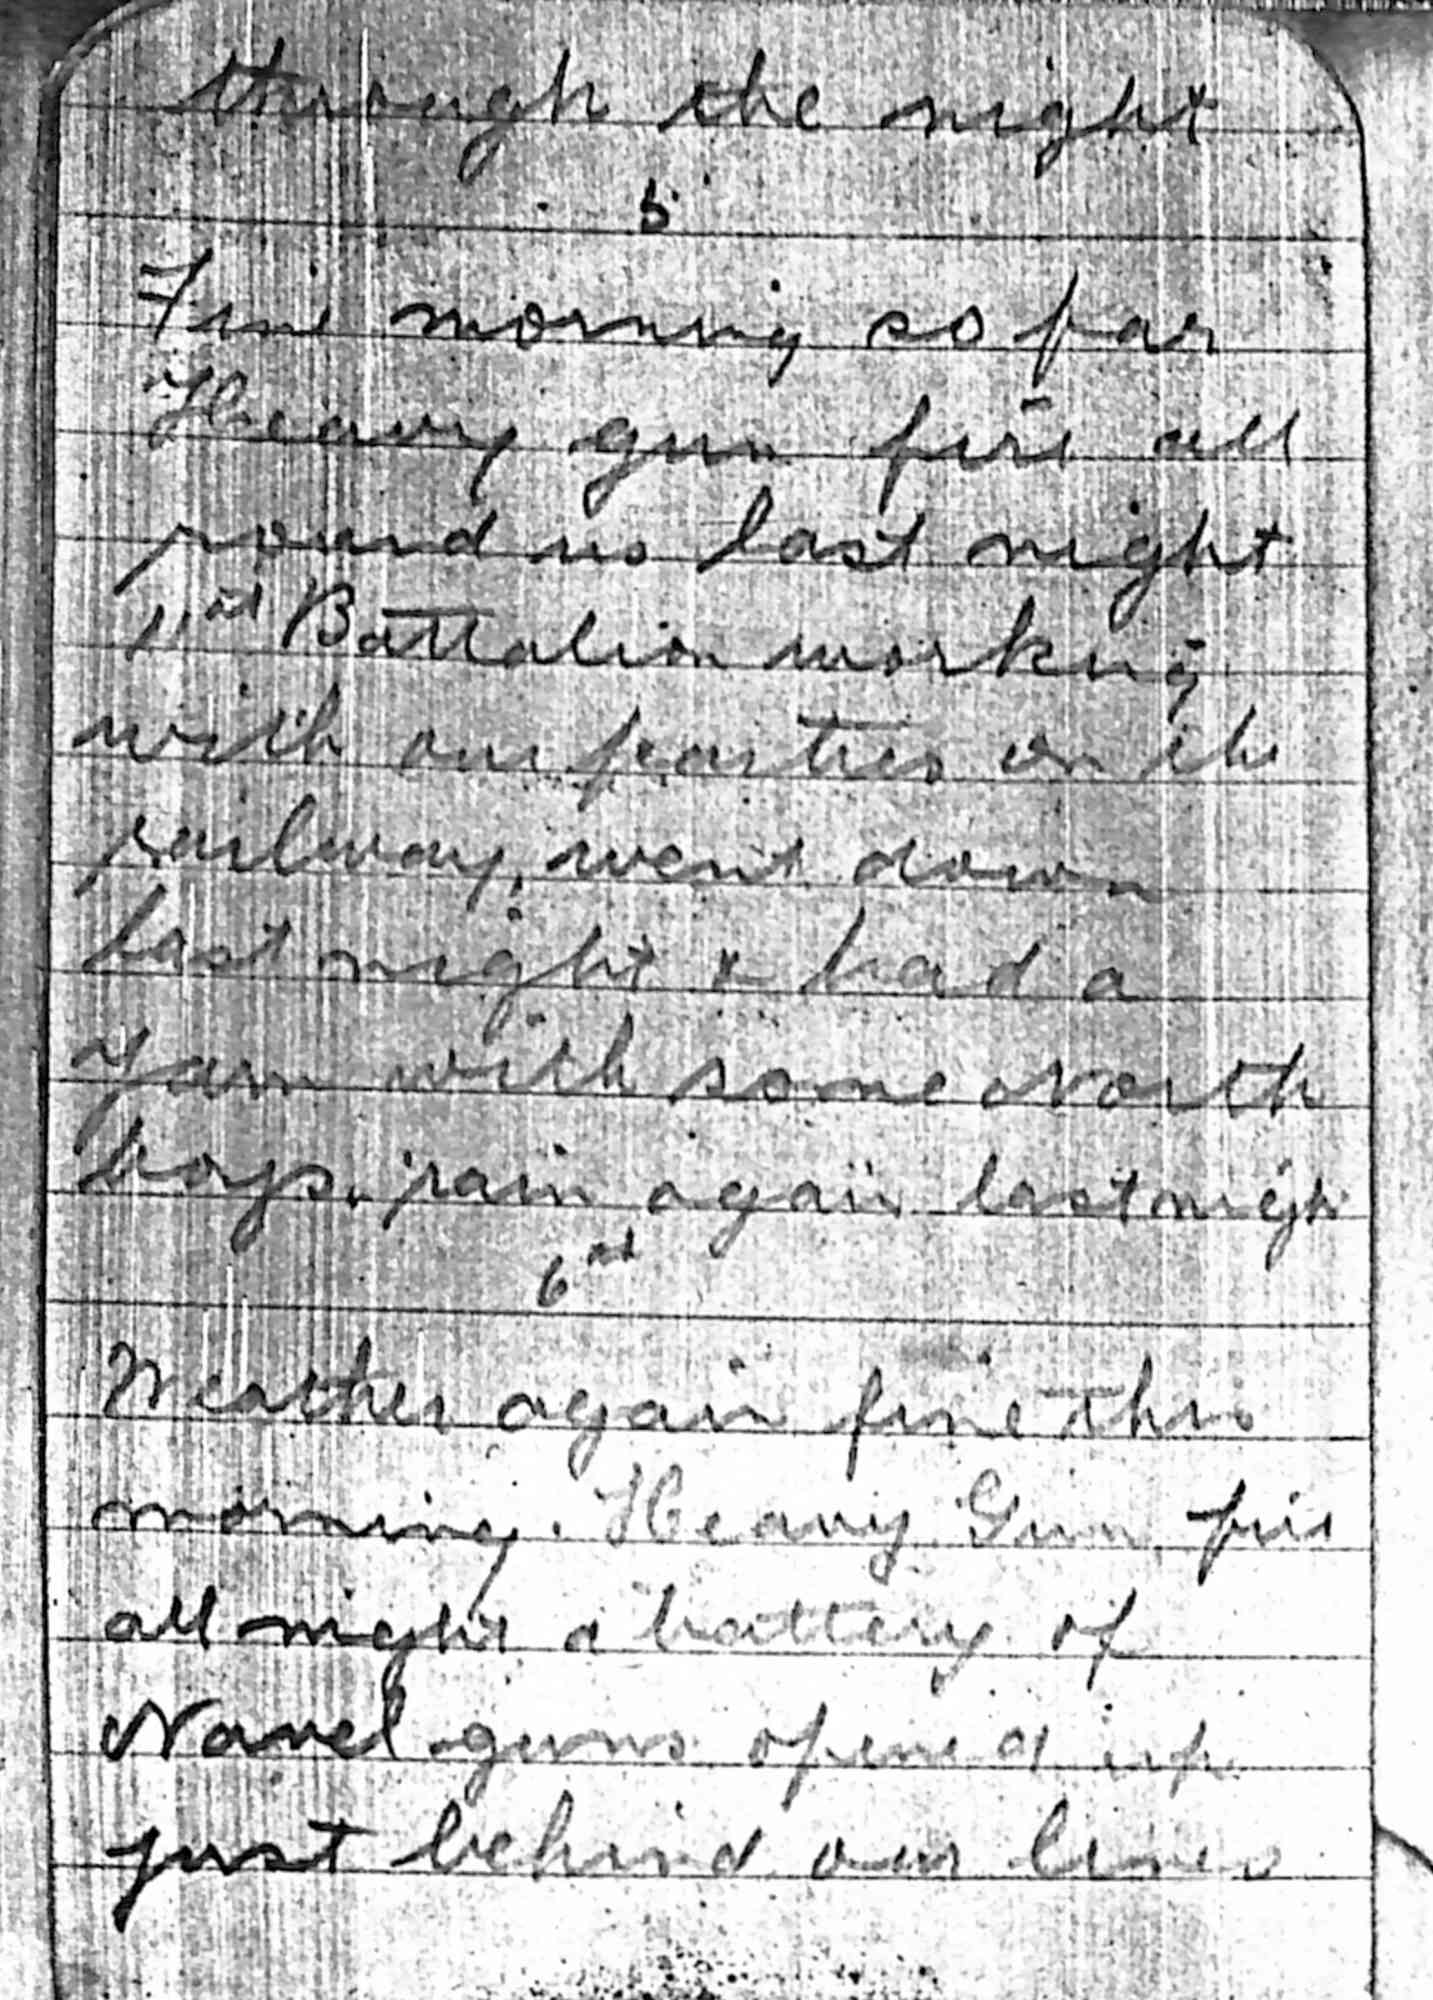 through the night
5
Fine morning so far
Heavy gun fire all
round us last night
11th Battalion working
with our parties on the
railway, went down
last night & had a
yarn with some North
boys. rain again last nigh
6th
Weather again fine this
morning. Heavy Gun fire
all night a battery of
Navel guns opened up
just behind our lines